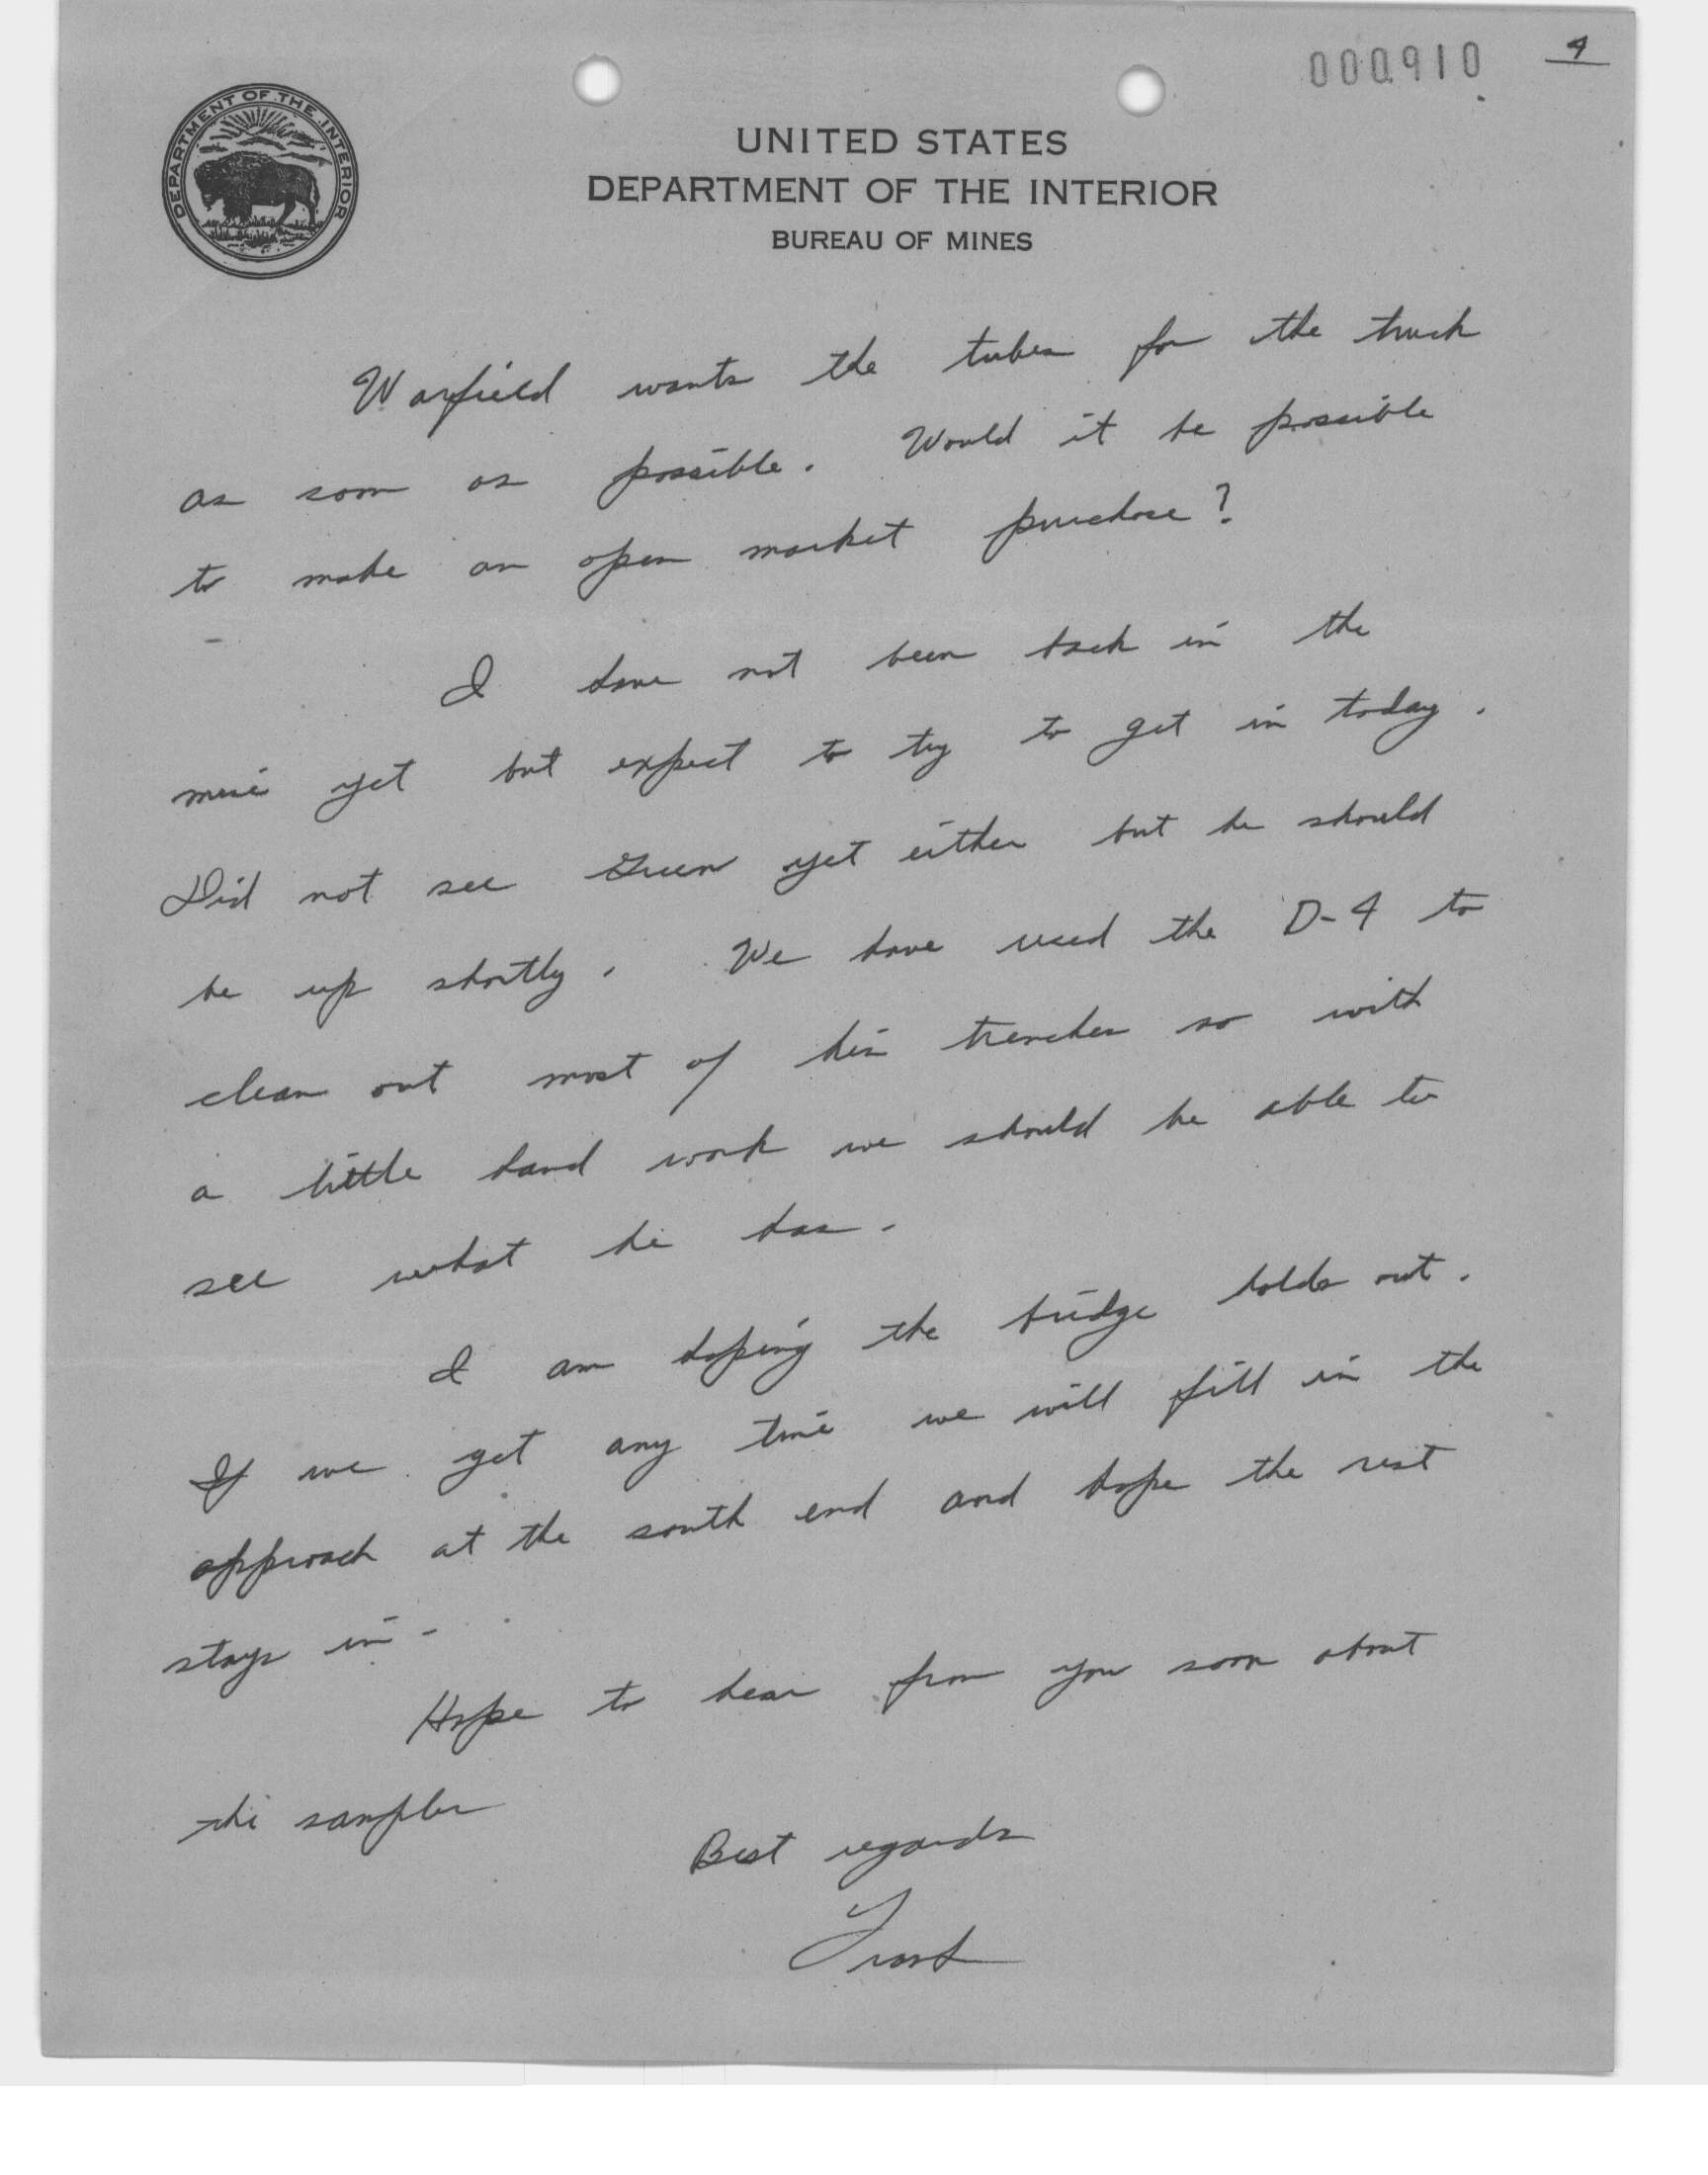 000910 4
DEPARTMENT OF THE INTERIOR
UNITED STATES
DEPARTMENT OF THE INTERIOR
BUREAU OF MINES
Warfield wants the tubes for the truck
as soon as possible. Would it be possible
to make an open market purchase?
I have not been back in the
mine yet but expect to try to get in today.
Did not see Green yet either but he should
be up shortly. We have used the D-4 to
clean out most of his trenches so with
a little hand work we should be able to
see what he has.
I am hoping the bridge holds out.
If we get any time we will fill in the
approach at the south end and hope the rest
stays in.
Hope to hear from you soon about
the samples
Best regards